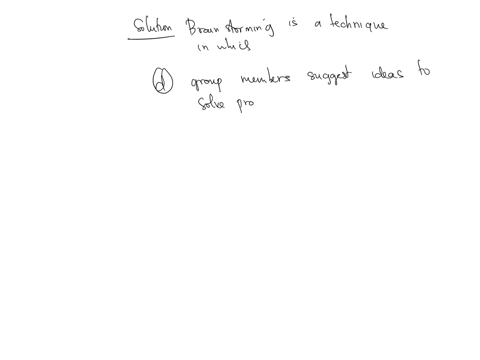 Solution Brain storming is a technique
in which
d group members suggest ideas to
solve pro